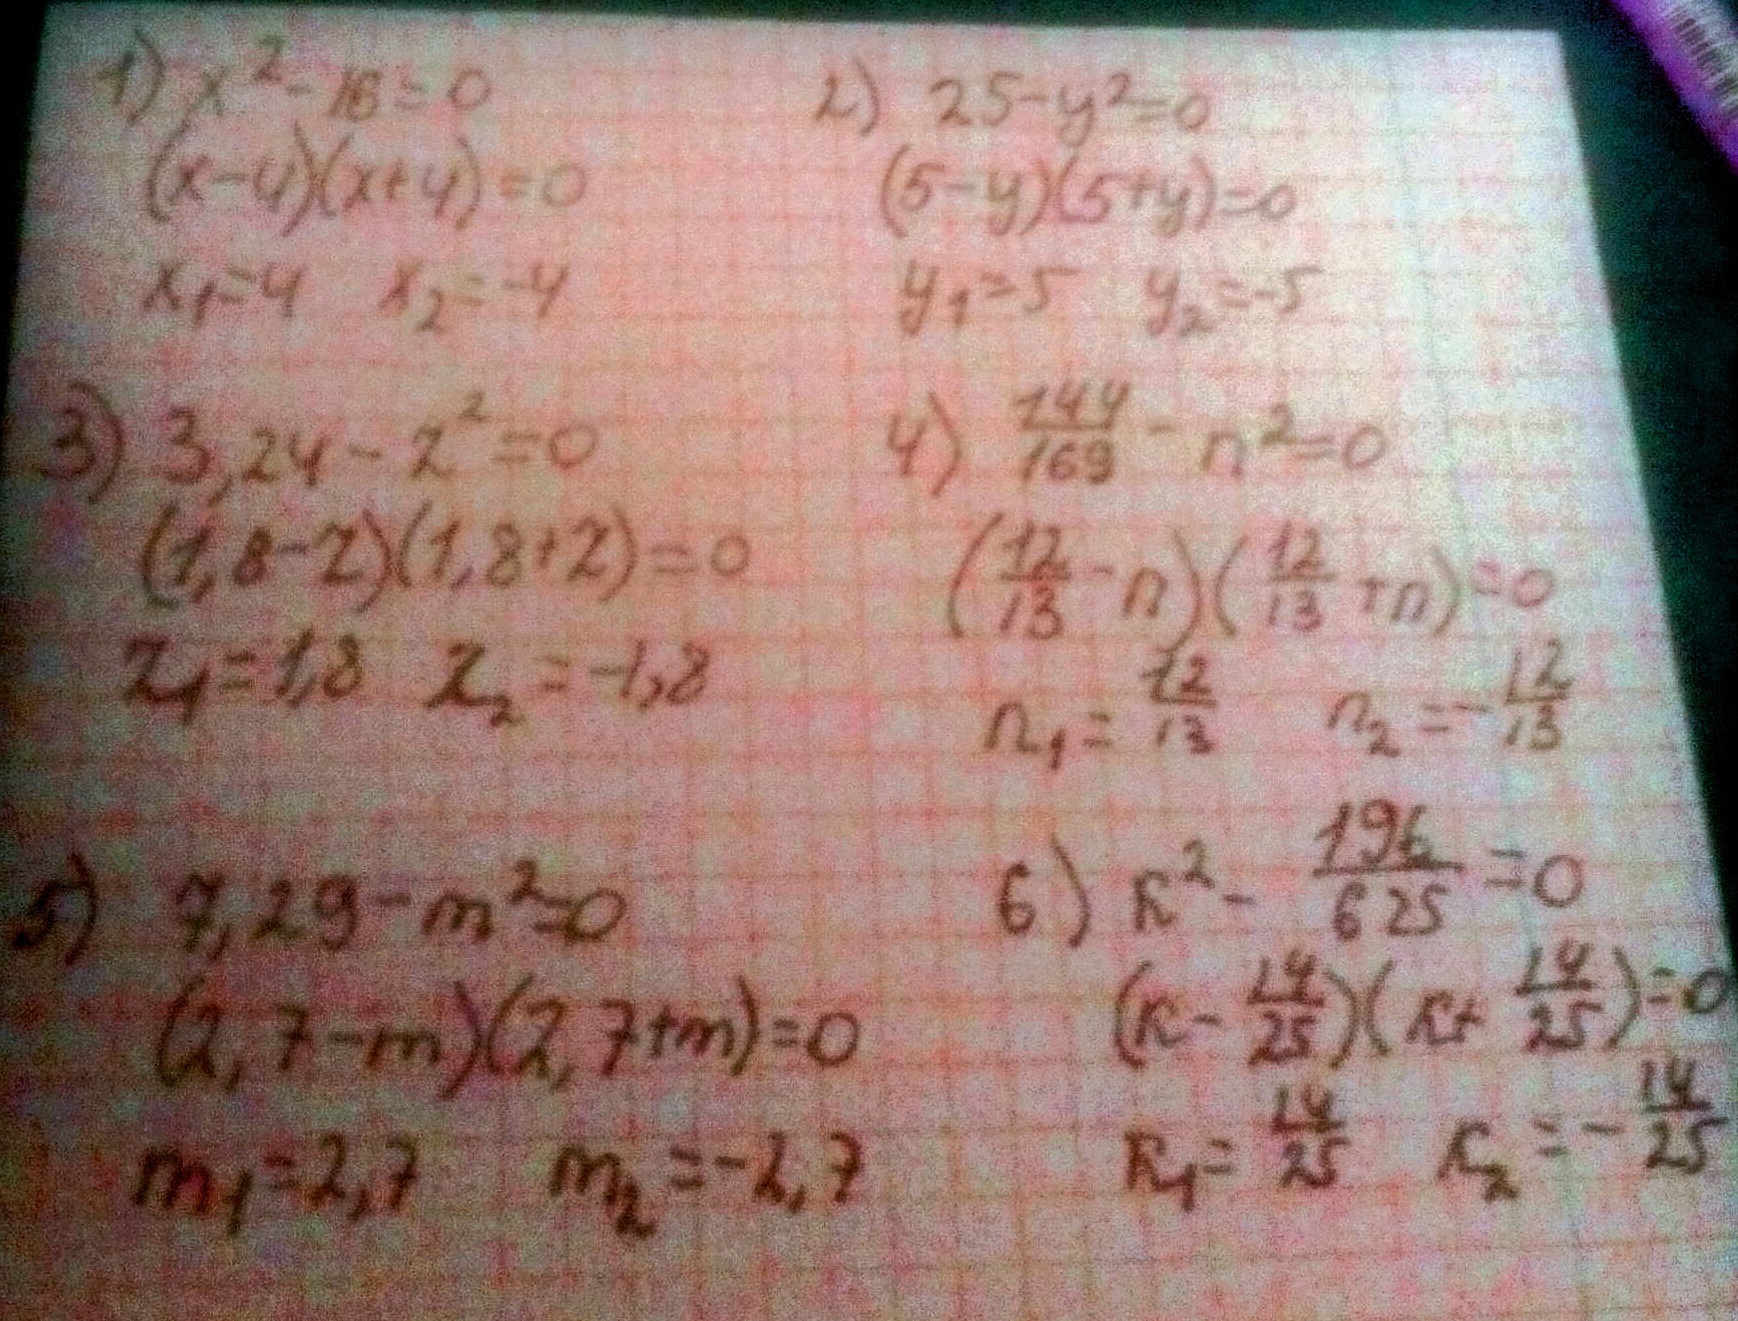 1) x² - 16 = 0
(x-4)(x+4) = 0
x₁=4 x₂=-4
2) 25-y²=0
(5-y)(5+y)=0
y₁=5 y₂=-5
3) 3,24 - z² = 0
(1,8-z)(1,8+z)=0
z₁=1,8 z₂=-1,8
4) 144/169 - n²=0
(12/13 - n)(12/13 + n)=0
n₁= 12/13 n₂=- 12/13
5) 7,29-m²=0
(2,7-m)(2,7+m)=0
m₁=2,7 m₂=-2,7
6) к² - 196/625 = 0
(к- 14/25)(к+ 14/25)=0
к₁= 14/25 к₂ = - 14/25